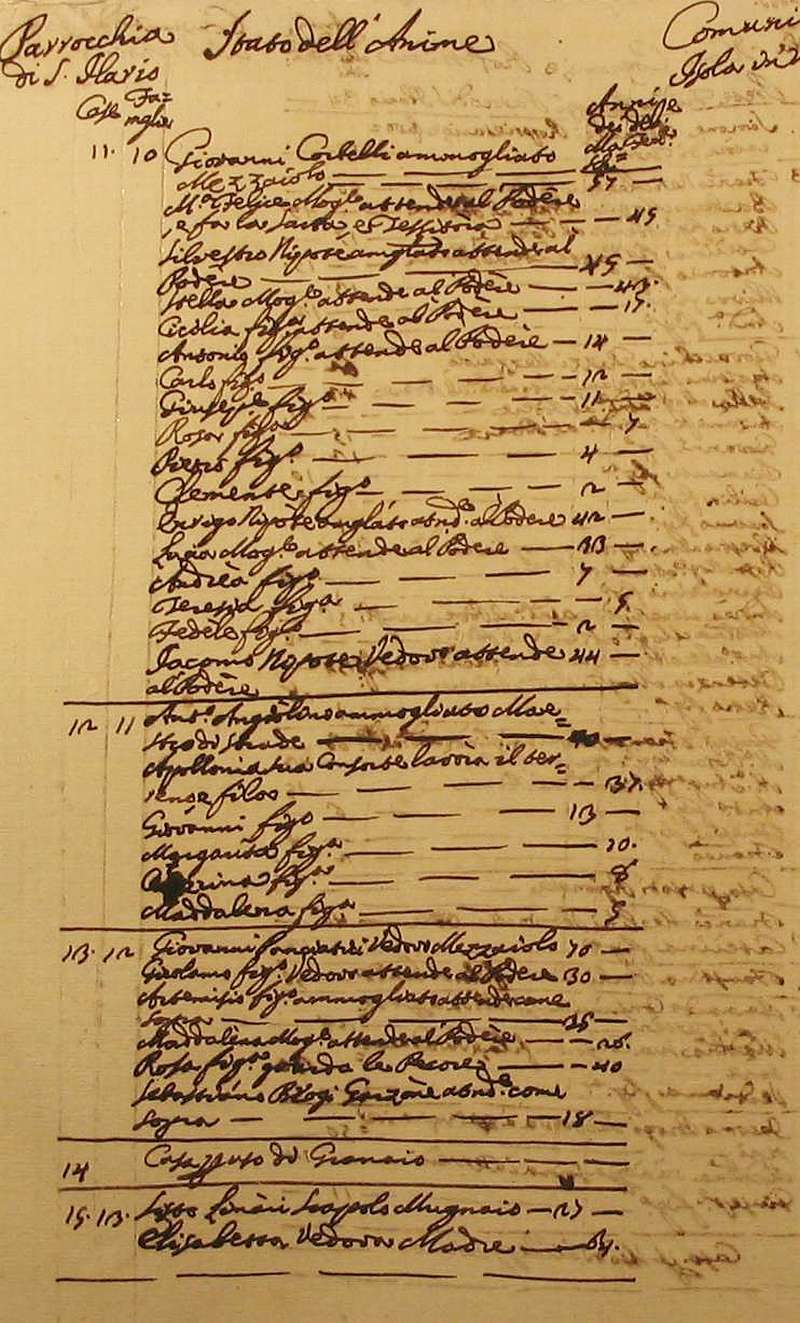 Parrocchia
di S. Ilario
Stato dell'Anime
Comuni
Isola
Case Fa=
miglie
Anni
11. 10 Giovanni Cortelli ammogliato
Mezzaiolo 57
M.a Felice Mog.e attende al Podère
e fa la Sarta, e Tessitora 45
Silvestro Nipote attende al
Podère 45
Stella Mog.e attende al Podère 43.
Cicilia fig.a attende al Podère 17.
Antonio fig.o attende al Podère 14
Carlo figo 12
Giuseppe figo 11
Rosa figa 7
Pietro fig.o 4
Clemente figo 2
Arrigo Nipote al Podere 42
Lucia Mog.e attende al Podere 33
Andrèa figo 7
Teresia figa 5
Fedèle figo 2
Jacomo Nipote Vedovo attende 44
al Podère
12 11 Ant.o ammogliato Mae=
stro di Strade 40
Apollonia sua Consorte lavora il ter=
reno e fila 37.
Giovanni figo 13
Margarita fig.a 10.
fig.a 8
Maddalena fig.a 5
13. 12 Giovanni Vedovo Mezzaiolo 70
Girolamo fig.o Vedovo attende al Podere 30
Artemisio fig.o ammogliato attende come
sopra 25
Maddalèna Mog.e attende al Podère 26.
Rosa fig.a guarda le Pecore 10
Sebastiano Garzone come
sopra 18
14 Casa Granaio
15. 13. Sisto Scapolo Mugnaio 27
Elisabetta Vedova Madre